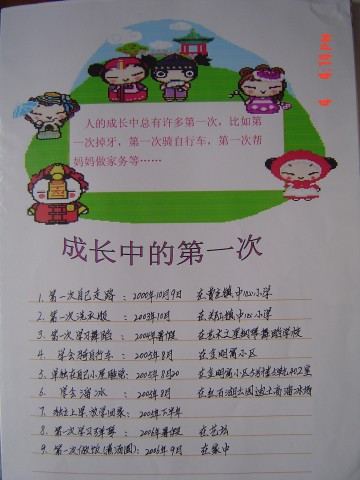 人的成长中总有许多第一次，比如第
一次掉牙，第一次骑自行车，第一次帮
妈妈做家务等……
成长中的第一次
1. 第一次自己走路：2000年10月9日 在曹王镇中心小学
2. 第一次洗衣服：2003年10月 在 镇中心小学
3. 第一次学习舞蹈：2004年暑假 在艺术之星钢琴舞蹈学校
4. 学会骑自行车：2005年8月 在金刚寓小区
5. 单独在自己小屋睡觉：2005年8月20 在金刚寓小区
6. 学会溜冰：2005年8月 在 溜冰场
7. 独立上学、放学回家：2005年下半年
8. 第一次学习弹琴：2006年暑假 在艺
9. 第一次做饭(煮汤圆)：2006年9月 在家中